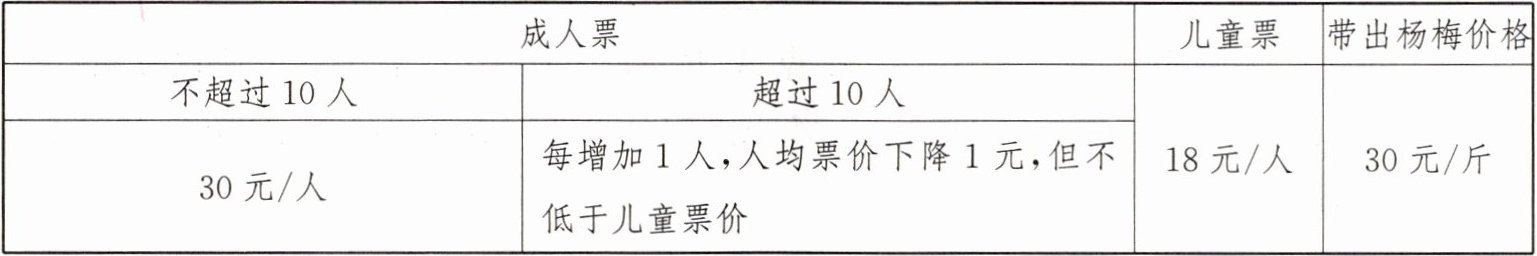 成人票 儿童票 带出杨梅价格
不超过10人 超过10人
30元/人 每增加1人,人均票价下降1元,但不低于儿童票价 18元/人 30元/斤